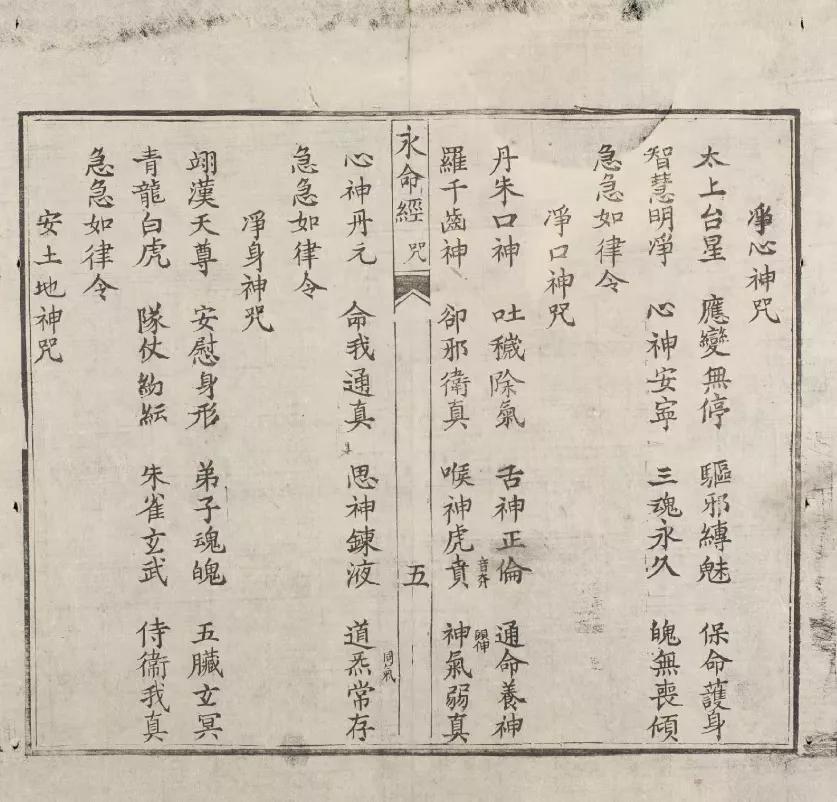 淨心神咒
太上台星 應變無停 驅邪縛魅 保命護身
智慧明淨 心神安寧 三魂永久 魄無喪傾
急急如律令
淨口神咒
丹朱口神 吐穢除氣 舌神正倫 通命養神
羅千齒神 卻邪衛真 喉神虎賁 音奔 神氣弱真
永命經 咒 五
心神丹元 命我通真 思神鍊液 道炁 同氣 常存
急急如律令
淨身神咒
翊漢天尊 安慰身形 弟子魂魄 五臟玄冥
青龍白虎 隊仗紛紜 朱雀玄武 侍衛我真
急急如律令
安土地神咒